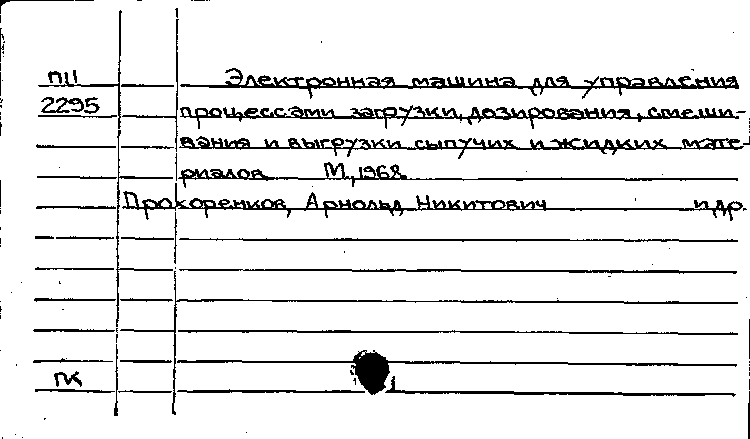 П11 Электронная машина для управления
2295 процессами загрузки, дозирования, смеши-
вания и выгрузки сыпучих и жидких мате-
риалов М., 1968
Прохоренков, Арнольд Никитович и др.
ПК